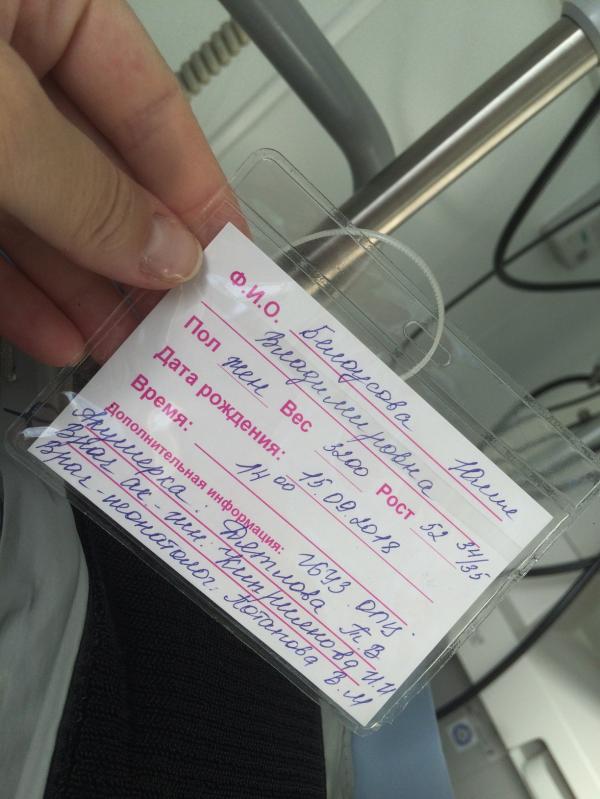 Ф.И.О. Белоусова Юлия
Владимировна
Пол жен Вес 3200 Рост 52 34/35
Дата рождения: 15.09.2018
Время: 14 00
дополнительная информация: ГБУЗ ОПЦ.
Акушерка: Детлова Т.В
Врач ак-гин. Киприянова И.И
Врач-неонатолог. Потапова В.М